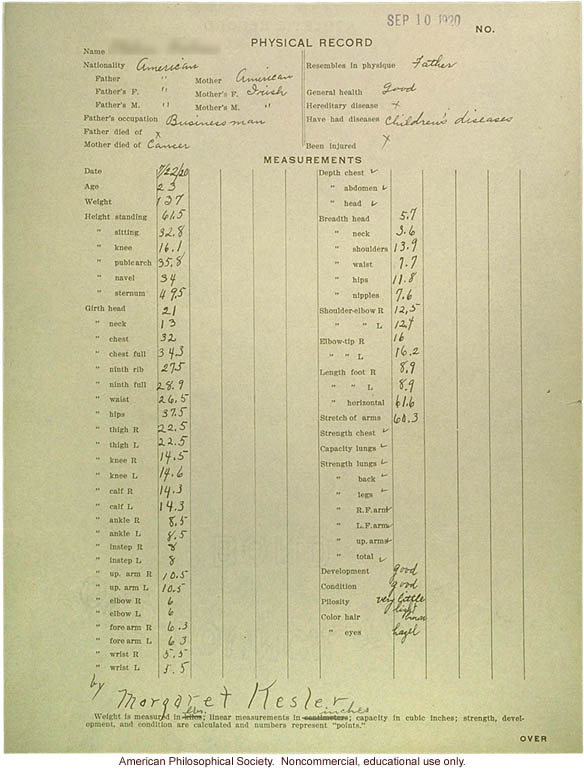 SEP 10 1920
NO.
PHYSICAL RECORD
Name
Nationality American
Father "
Mother American
Father's F. "
Mother's F. Irish
Father's M. "
Mother's M. "
Father's occupation Business man
Father died of x
Mother died of Cancer
Resembles in physique Father
General health Good
Hereditary disease x
Have had diseases Children's diseases
Been injured x
MEASUREMENTS
Date 7/22/20
Age 23
Weight 127
Height standing 61.5
" sitting 32.8
" knee 16.1
" pubic arch 35.8
" navel 34
" sternum 49.5
Girth head 21
" neck 13
" chest 32
" chest full 34.3
" ninth rib 27.5
" ninth full 28.9
" waist 26.5
" hips 37.5
" thigh R 22.5
" thigh L 22.5
" knee R 14.5
" knee L 14.6
" calf R 14.3
" calf L 14.3
" ankle R 8.5
" ankle L 8.5
" instep R 8
" instep L 8
" up. arm R 10.5
" up. arm L 10.5
" elbow R 6
" elbow L 6
" fore arm R 6.3
" fore arm L 6.3
" wrist R 5.5
" wrist L 5.5
Depth chest ✓
" abdomen ✓
" head ✓
Breadth head 5.7
" neck 3.6
" shoulders 13.9
" waist 7.7
" hips 11.8
" nipples 7.6
Shoulder-elbow R 12.5
" " L 12.4
Elbow-tip R 16
" " L 16.2
Length foot R 8.9
" " L 8.9
" horizontal 61.6
Stretch of arms 60.3
Strength chest ✓
Capacity lungs ✓
Strength lungs ✓
" back ✓
" legs ✓
" R.F. arm ✓
" L.F. arm ✓
" up. arms ✓
" total ✓
Development good
Condition good
Pilosity very little
Color hair light brown
" eyes hazel
by Margaret Kesler
lbs. inches
Weight is measured in kilos; linear measurements in centimeters; capacity in cubic inches; strength, devel-
opment, and condition are calculated and numbers represent "points."
OVER
American Philosophical Society. Noncommercial, educational use only.